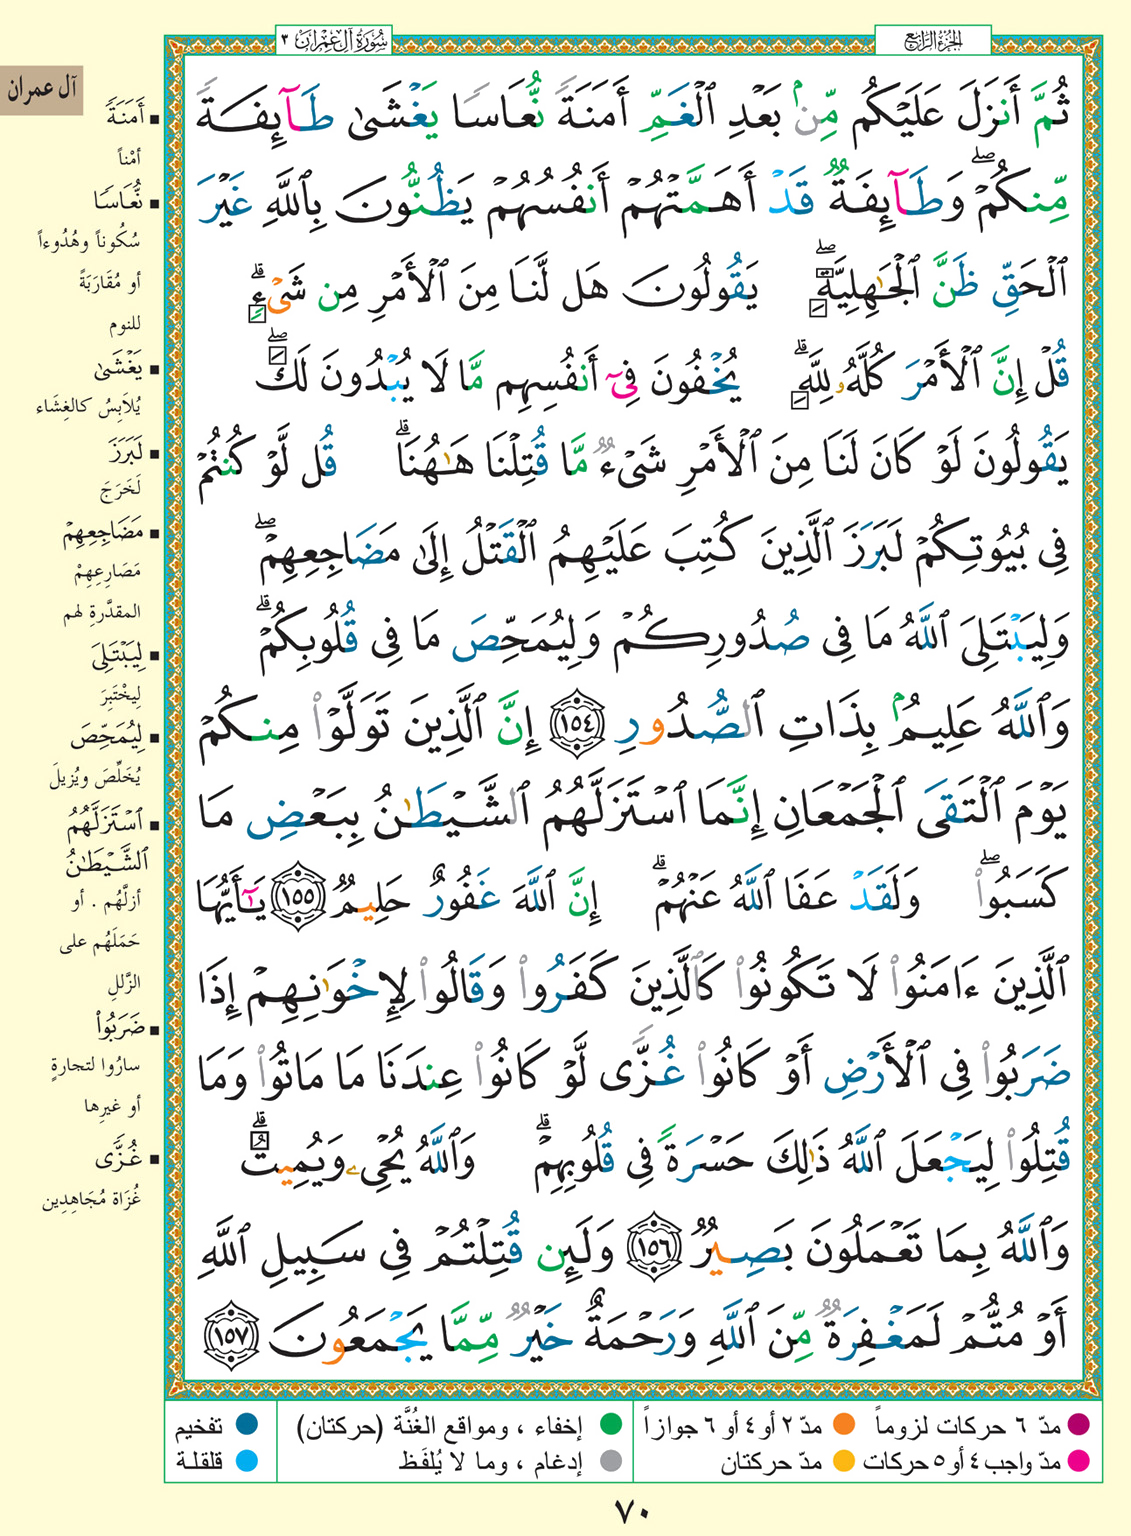 الجزء الرابع
سورة آل عمران ٣
ثُمَّ أَنزَلَ عَلَيْكُم مِّنۢ بَعْدِ ٱلْغَمِّ أَمَنَةً نُّعَاسًا يَغْشَىٰ طَآئِفَةً
مِّنكُمْ ۖ وَطَآئِفَةٌ قَدْ أَهَمَّتْهُمْ أَنفُسُهُمْ يَظُنُّونَ بِٱللَّهِ غَيْرَ
ٱلْحَقِّ ظَنَّ ٱلْجَٰهِلِيَّةِ ۖ يَقُولُونَ هَل لَّنَا مِنَ ٱلْأَمْرِ مِن شَىْءٍ ۗ
قُلْ إِنَّ ٱلْأَمْرَ كُلَّهُۥ لِلَّهِ ۗ يُخْفُونَ فِىٓ أَنفُسِهِم مَّا لَا يُبْدُونَ لَكَ ۖ
يَقُولُونَ لَوْ كَانَ لَنَا مِنَ ٱلْأَمْرِ شَىْءٌ مَّا قُتِلْنَا هَٰهُنَا ۗ قُل لَّوْ كُنتُمْ
فِى بُيُوتِكُمْ لَبَرَزَ ٱلَّذِينَ كُتِبَ عَلَيْهِمُ ٱلْقَتْلُ إِلَىٰ مَضَاجِعِهِمْ ۖ
وَلِيَبْتَلِىَ ٱللَّهُ مَا فِى صُدُورِكُمْ وَلِيُمَحِّصَ مَا فِى قُلُوبِكُمْ ۗ
وَٱللَّهُ عَلِيمٌۢ بِذَاتِ ٱلصُّدُورِ ١٥٤ إِنَّ ٱلَّذِينَ تَوَلَّوْا۟ مِنكُمْ
يَوْمَ ٱلْتَقَى ٱلْجَمْعَانِ إِنَّمَا ٱسْتَزَلَّهُمُ ٱلشَّيْطَٰنُ بِبَعْضِ مَا
كَسَبُوا۟ ۖ وَلَقَدْ عَفَا ٱللَّهُ عَنْهُمْ ۗ إِنَّ ٱللَّهَ غَفُورٌ حَلِيمٌ ١٥٥ يَٰٓأَيُّهَا
ٱلَّذِينَ ءَامَنُوا۟ لَا تَكُونُوا۟ كَٱلَّذِينَ كَفَرُوا۟ وَقَالُوا۟ لِإِخْوَٰنِهِمْ إِذَا
ضَرَبُوا۟ فِى ٱلْأَرْضِ أَوْ كَانُوا۟ غُزًّى لَّوْ كَانُوا۟ عِندَنَا مَا مَاتُوا۟ وَمَا
قُتِلُوا۟ لِيَجْعَلَ ٱللَّهُ ذَٰلِكَ حَسْرَةً فِى قُلُوبِهِمْ ۗ وَٱللَّهُ يُحْىِۦ وَيُمِيتُ ۗ
وَٱللَّهُ بِمَا تَعْمَلُونَ بَصِيرٌ ١٥٦ وَلَئِن قُتِلْتُمْ فِى سَبِيلِ ٱللَّهِ
أَوْ مُتُّمْ لَمَغْفِرَةٌ مِّنَ ٱللَّهِ وَرَحْمَةٌ خَيْرٌ مِّمَّا يَجْمَعُونَ ١٥٧
آل عمران
أَمَنَةً
أمْناً
نُّعَاسًا
سُكُوناً وهُدُوءاً
أو مُقَارَبَةً
للنوم
يَغْشَىٰ
يُلاَبِسُ كالغِشَاء
لَبَرَزَ
لَخَرَجَ
مَضَاجِعِهِمْ
مَصَارِعِهِمْ
المقدَّرةِ لهم
لِيَبْتَلِىَ
لِيخْتَبِرَ
لِيُمَحِّصَ
يُخَلِّصَ ويُزيلَ
ٱسْتَزَلَّهُمُ
ٱلشَّيْطَٰنُ
أزلَّهُم . أو
حَمَلَهُم على
الزَّللِ
ضَرَبُوا۟
سارُوا لتجارةٍ
أو غيرِها
غُزًّى
غُزَاة مُجَاهِدِين
مدّ ٦ حركات لزوماً
مدّ ٢ أو ٤ أو ٦ جوازاً
إخفاء ، ومواقع الغُنَّة (حركتان)
تفخيم
مدّ واجب ٤ أو ٥ حركات
مدّ حركتان
إدغام ، وما لا يُلفَظ
قلقلة
٧٠